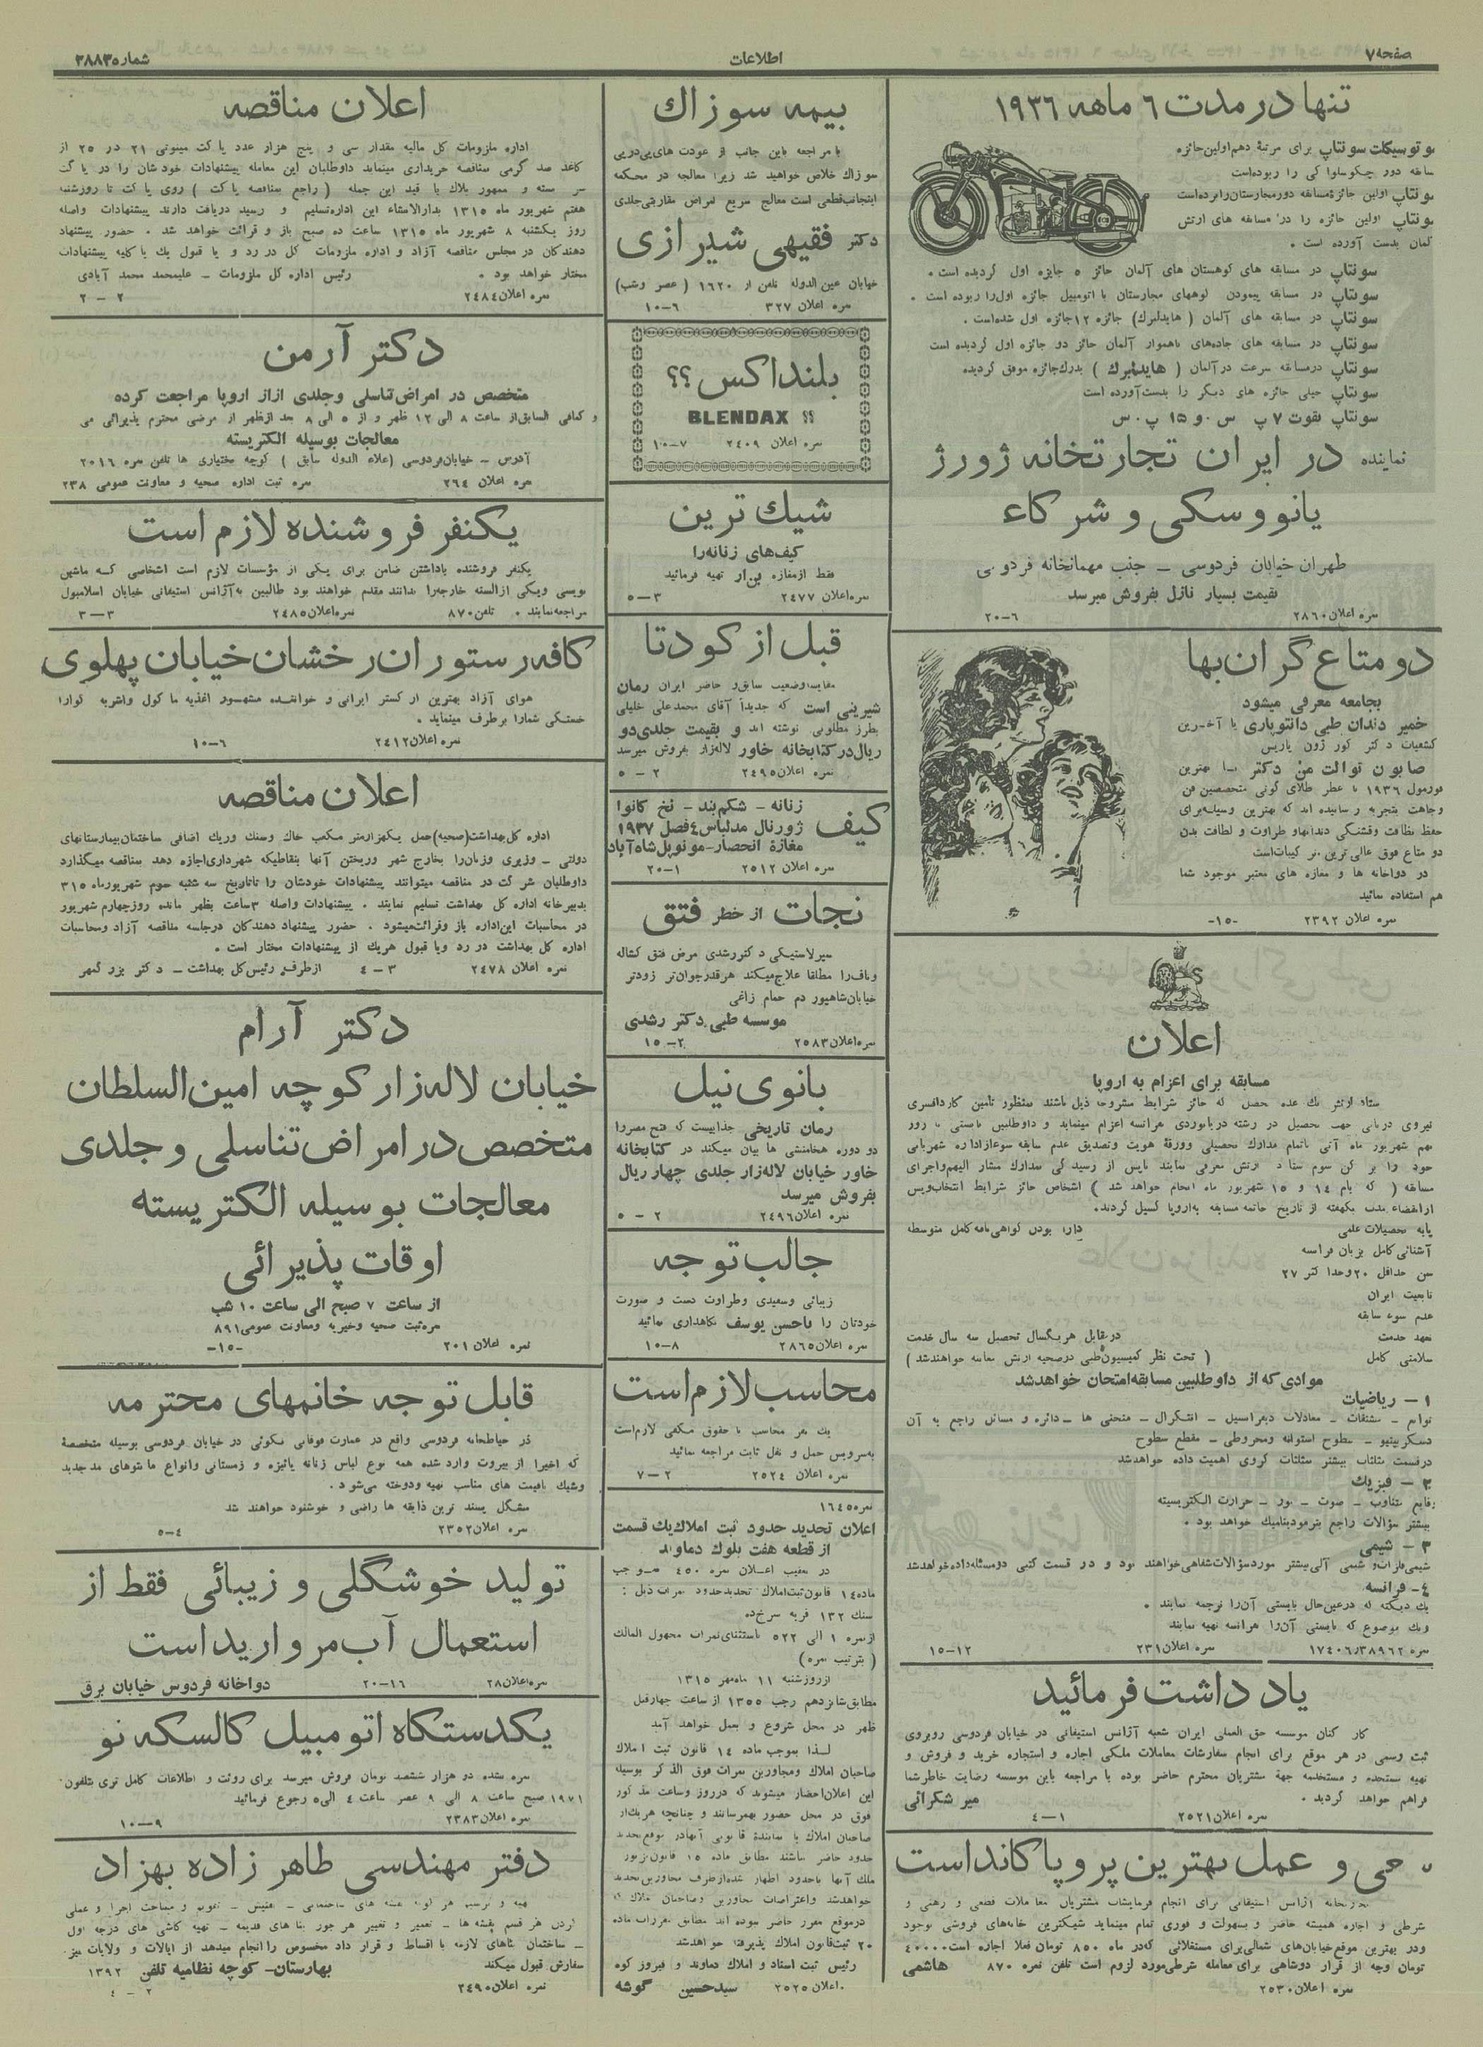 صفحه ۷
اطلاعات
شماره ۳۸۸۳
تنها در مدت ۶ ماهه ۱۹۳۶
موتوسیکلت سونتاپ برای مرتبهٔ دهم اولین جائزه
مسابقه دور چکوسلواکی را ربوده است
سونتاپ اولین جائزهٔ مسابقه دور مجارستان را برده است
سونتاپ اولین جائزه را در مسابقه های ارتش
آلمان بدست آورده است .
سونتاپ در مسابقه های کوهستان های آلمان حائز ۵ جایزه اول گردیده است .
سونتاپ در مسابقه پیمودن لوههای مجارستان با اتومبیل جائزه اول را ربوده است .
سونتاپ در مسابقه های آلمان ( هایدلبرک) جائزه ۱۲ جائزه اول شده است .
سونتاپ در مسابقه های جاده‌های ناهموار آلمان حائز دو جائزه اول گردیده است
سونتاپ در مسابقه سرعت در آلمان ( هایدلبرک ) بدرک جائزه موفق گردیده
سونتاپ خیلی جائزه های دیگر را بدست آورده است
سونتاپ بقوت ۷ پ س . و ۱۵ پ . س
نماینده در ایران تجارتخانه ژورژ
یانووسکی و شرکاء
طهران خیابان فردوسی – جنب مهمانخانه فردوسی
بقیمت بسیار نازل بفروش میرسد
نمره اعلان ۲۸۶۰ ۶–۲۰
دو متاع گران بها
بجامعه معرفی میشود
خمیر دندان طبی دانتوپاری با آخرین
کشفیات دکتر کور ژون پاریس
صابون توالت من دکتر با بهترین
فورمول ۱۹۳۶ با عطر طلای گونی متخصصین فن
وجاهت بتجربه رسانیده اند که بهترین وسیله برای
حفظ نظافت و قشنگی دندانها و طراوت و لطافت بدن
دو متاع فوق عالی ترین ترکیبات است
در دواخانه ها و مغازه های معتبر موجود شما
هم استفاده نمائید
نمره اعلان ۲۳۹۲ -۱۵-
اعلان
مسابقه برای اعزام به اروپا
ستاد ارتش یک عده محصل که حائز شرایط مشروحه ذیل باشند بمنظور تامین کادر افسری
نیروی دریائی جهت تحصیل در رشته دریانوردی بفرانسه اعزام مینماید و داوطلبین بایستی تا روز
نهم شهریور ماه آتی با تمام مدارک تحصیلی و ورقهٔ هویت و تصدیق عدم سابقه سوء از اداره شهربانی
خود را به رکن سوم ستاد ارتش معرفی نمایند تا پس از رسیدگی بمدارک مشار الیهم و اجرای
مسابقه ( که بایام ۱۴ و ۱۵ شهریور ماه انجام خواهد شد ) اشخاص حائز شرایط انتخاب و پس
از انقضاء مدت یکهفته از تاریخ خاتمه مسابقه به اروپا گسیل گردند.
پایه تحصیلات علمی دارا بودن گواهی نامه کامل متوسطه
آشنائی کامل بزبان فرانسه
سن حداقل ۲۰ و حداکثر ۲۷
تابعیت ایران
عدم سوء سابقه
تعهد خدمت در مقابل هر یکسال تحصیل سه سال خدمت
سلامتی کامل ( تحت نظر کمیسیون طبی در صحیه ارتش معاینه خواهند شد )
موادی که از داوطلبین مسابقه امتحان خواهد شد
۱ – ریاضیات
توابع – مشتقات – معادلات دیفرانسیل – انتگرال – منحنی ها – دائره و مسائل راجع به آن
دسکریپتیو – سطوح استوانه و مخروطی – مقطع سطوح
در قسمت مثلثات بیشتر بمثلثات کروی اهمیت داده خواهد شد
۲ – فیزیک
وقایع متناوب – صوت – نور – حرارت الکتریسیته
بیشتر سؤالات راجع بترمودینامیک خواهد بود .
۳ – شیمی
شیمی فلزات و شیمی آلی بیشتر مورد سؤالات شفاهی خواهند بود و در قسمت کتبی دو مسئله داده خواهد شد
۴- فرانسه
یک دیکته که در عین حال بایستی آن را ترجمه نمایند .
و یک موضوع که بایستی آن را بفرانسه تهیه نمایند
نمره ۱۷۴۰۶٫۳۸۹۶۲ نمره اعلان ۲۳۱ ۱۲–۱۵
یادداشت فرمائید
کارکنان موسسه حق العملی ایران شعبه آژانس استیفانی در خیابان فردوسی روبروی
ثبت رسمی در هر موقع برای انجام سفارشات معاملات ملکی اجاره و استجاره خرید و فروش و
تهیه مستخدم و مستخدمه جهة مشتریان محترم حاضر بوده با مراجعه باین موسسه رضایت خاطر شما
فراهم خواهد گردید . میر شکرائی
نمره اعلان ۲۵۲۱ ۱–۴
حی و عمل بهترین پروپاکاند است
آژانس استیفانی برای انجام فرمایشات مشتریان معاملات قطعی و رهنی و
شرطی و اجاره همیشه حاضر و بسهولت و فوری تمام مینماید شیکترین خانه‌های فروشی موجود
و در بهترین موقع خیابان‌های شمالی برای مستغلاتی که در ماه ۸۵۰ تومان فعلا اجاره است ۴۰۰۰۰
تومان وجه از قرار دوشاهی برای معامله شرطی مورد لزوم است تلفن نمره ۸۷۰ هاشمی
نمره اعلان ۲۵۳۰
بیمه سوزاک
با مراجعه باین جانب از عودت های پی در پی
سوزاک خلاص خواهید شد زیرا معالجه در محکمه
اینجانب قطعی است معالج سریع امراض مقاربتی جلدی
دکتر فقیهی شیرازی
خیابان عین الدوله تلفن از ۱۶۲۰ ( عصر و شب)
نمره اعلان ۳۲۷ ۶–۱۰
بلنداکس ؟؟
BLENDAX ؟؟
نمره اعلان ۲۴۰۹ ۷–۱۰
شیک ترین
کیف‌های زنانه را
فقط از مغازه بن‌ار تهیه فرمائید
نمره اعلان ۲۴۷۷ ۳–۵
قبل از کودتا
مقایسه وضعیت سابق و حاضر ایران رمان
شیرینی است که جدیداً آقای محمد علی خلیلی
بطرز مطلوبی نوشته اند و بقیمت جلدی دو
ریال در کتابخانه خاور لاله‌زار بفروش میرسد
نمره اعلان ۲۴۹۵ ۲–۵
کیف زنانه – شکم‌بند – نخ کانوا
ژورنال مدلباس ۴ فصل ۱۹۳۷
مغازهٔ انحصار – مونوپل شاه آباد
نمره اعلان ۲۵۱۲ ۱–۲۰
نجات از خطر فتق
سیر لاستیکی دکتر رشدی مرض فتق کشاله
و ناف را مطلقا علاج میکند هر قدر جوان‌تر زودتر
خیابان شاهپور دم حمام زاغی
موسسه طبی دکتر رشدی
نمره اعلان ۲۵۸۳ ۲–۱۵
بانوی نیل
رمان تاریخی جذابیست که فتح مصر را
دو دوره هخامنشی ها بیان میکند در کتابخانه
خاور خیابان لاله‌زار جلدی چهار ریال
بفروش میرسد
نمره اعلان ۲۴۹۶ ۲–۵
جالب توجه
زیبائی و سفیدی و طراوت دست و صورت
خودتان را باحسن یوسف نگاهداری نمائید
نمره اعلان ۲۸۶۵ ۸–۱۰
محاسب لازم است
یک نفر محاسب با حقوق مکفی لازم است
به سرویس حمل و نقل ثابت مراجعه نمائید
نمره اعلان ۲۵۲۴ ۲–۷
نمره ۱۶۴۵
اعلان تحدید حدود ثبت املاک یک قسمت
از قطعه هفت بلوک دماوند
در تعقیب اعلان نمره ۴۵۰ بموجب
ماده ۱۴ قانون ثبت املاک تحدید حدود نمرات ذیل :
سنک ۱۳۲ قریه سرخ‌ده
از نمره ۱ الی ۵۲۲ باستثنای نمرات مجهول المالک
( بترتیب نمره)
از روز شنبه ۱۱ ماه مهر ۱۳۱۵
مطابق شانزدهم رجب ۱۳۵۵ از ساعت چهار قبل
ظهر در محل شروع و بعمل خواهد آمد
لذا بموجب ماده ۱۴ قانون ثبت املاک
صاحبان املاک و مجاورین نمرات فوق الذکر بوسیله
این اعلان احضار میشوند که در روز و ساعت مذکور
فوق در محل حضور بهمرسانند و چنانچه هر یک از
صاحبان املاک یا نمایندهٔ قانونی آنها در موقع تحدید
حدود حاضر نباشند مطابق ماده ۱۵ قانون مزبور
ملک آنها با حدود اظهار شده از طرف مجاورین تحدید
خواهد شد و اعتراضات مجاورین و صاحبان املاک که
در موقع مقرر حاضر نبوده اند مطابق مقررات ماده
۲۰ ثبت قانون املاک پذیرفته خواهد شد
رئیس ثبت اسناد و املاک دماوند و فیروزکوه
اعلان ۲۵۲۵ سیدحسین گوشه
اعلان مناقصه
اداره ملزومات کل مالیه مقدار سی و پنج هزار عدد پاکت میموتی ۲۱ در ۲۵ از
کاغذ صد گرمی مناقصه خریداری مینماید داوطلبان این معامله پیشنهادات خودشان را در پاکت
سر بسته و ممهور بلاک با قید این جمله ( راجع بمناقصه پاکت ) روی پاکت تا روز شنبه
هفتم شهریور ماه ۱۳۱۵ بدار الانشاء این اداره تسلیم و رسید دریافت دارند پیشنهادات واصله
روز یکشنبه ۸ شهریور ماه ۱۳۱۵ ساعت ده صبح باز و قرائت خواهد شد . حضور پیشنهاد
دهندگان در مجلس مناقصه آزاد و اداره ملزومات کل در رد و یا قبول یک یا کلیه پیشنهادات
مختار خواهد بود . رئیس اداره کل ملزومات – علیمحمد محمد آبادی
نمره اعلان ۲۴۸۴ ۲–۲
دکتر آرمن
متخصص در امراض تناسلی و جلدی از از اروپا مراجعت کرده
و کمافی السابق از ساعت ۸ الی ۱۲ ظهر و از ۵ الی ۸ بعد از ظهر از مرضی محترم پذیرائی می
معالجات بوسیله الکتریسته
آدرس – خیابان فردوسی (علاء الدوله سابق ) کوچه بختیاری ها تلفن نمره ۲۰۱۶
نمره اعلان ۲۶۴ نمره ثبت اداره صحیه و معاونت عمومی ۲۳۸
یکنفر فروشنده لازم است
یکنفر فروشنده با داشتن ضامن برای یکی از مؤسسات لازم است اشخاصی که ماشین
نویسی و یکی از السنه خارجه را بدانند مقدم خواهند بود طالبین به آژانس استیفانی خیابان اسلامبول
مراجعه نمایند . تلفن ۸۷۰ نمره اعلان ۲۴۸۵ ۳–۳
کافه رستوران رخشان خیابان پهلوی
هوای آزاد بهترین ارکستر ایرانی و خواننده مشهور اغذیه ماکول و اشربه گوارا
خستگی شما را برطرف مینماید .
نمره اعلان ۲۴۱۲ ۶–۱۰
اعلان مناقصه
اداره کل بهداشت (صحیه) حمل یکهزار متر مکعب خاک و سنک و ریک اضافی ساختمان بیمارستانهای
دولتی – وزیری و زنان را بخارج شهر و ریختن آنها بنقاطیکه شهرداری اجازه دهد بمناقصه میگذارد
داوطلبان شرکت در مناقصه میتوانند پیشنهادات خودشان را تا تاریخ سه شنبه سوم شهریور ماه ۳۱۵
بدبیرخانه اداره کل بهداشت تسلیم نمایند . پیشنهادات واصله ۳ ساعت بظهر مانده روز چهارم شهریور
در محاسبات این اداره باز و قرائت میشود . حضور پیشنهاد دهندگان در جلسه مناقصه آزاد و محاسبات
اداره کل بهداشت در رد و یا قبول هر یک از پیشنهادات مختار است .
نمره اعلان ۲۴۷۸ ۳–۴ از طرف رئیس کل بهداشت – دکتر بزرگمهر
دکتر آرام
خیابان لاله‌زار کوچه امین‌السلطان
متخصص در امراض تناسلی و جلدی
معالجات بوسیله الکتریسته
اوقات پذیرائی
از ساعت ۷ صبح الی ساعت ۱۰ شب
نمره ثبت صحیه و خیریه و معاونت عمومی ۸۹۱
نمره اعلان ۲۰۱ -۱۵-
قابل توجه خانمهای محترمه
در خیاطخانه فردوسی واقع در عمارت فوقانی مگوئی در خیابان فردوسی بوسیله متخصصهٔ
که اخیرا از بیروت وارد شده همه نوع لباس زنانه پائیزه و زمستانی و انواع مانتوهای مد جدید
و شیک باقیمت های مناسب تهیه و دوخته می‌شود .
مشگل پسند ترین ذایقه ها راضی و خوشنود خواهند شد
نمره اعلان ۲۳۵۲ ۴–۵
تولید خوشگلی و زیبائی فقط از
استعمال آب مروارید است
نمره اعلان ۲۸ ۱۶–۲۰ دواخانه فردوس خیابان برق
یکدستگاه اتومبیل کالسکه نو
نمره شده دو هزار ششصد تومان فروش میرسد برای رویت و اطلاعات کامل تری بتلفون
۱۹۷۱ صبح ساعت ۸ الی ۹ عصر ساعت ۴ الی ۵ رجوع فرمائید
نمره اعلان ۲۳۸۳ ۹–۱۰
دفتر مهندسی طاهر زاده بهزاد
تهیه و ترسیم هر گونه نقشه های ساختمانی – تفتیش – تقویم و مساحت اجرا و عملی
کردن هر قسم نقشه ها – تعمیر و تغییر هر جور بناهای قدیمه – تهیه کاشی های درجه اول
– ساختمان بناهای لازمه با اقساط و قرار داد مخصوص را انجام میدهد از ایالات و ولایات نیز
سفارش قبول میکند بهارستان – کوچه نظامیه تلفن ۱۳۹۲
نمره اعلان ۲۴۹۰ ۲–۴